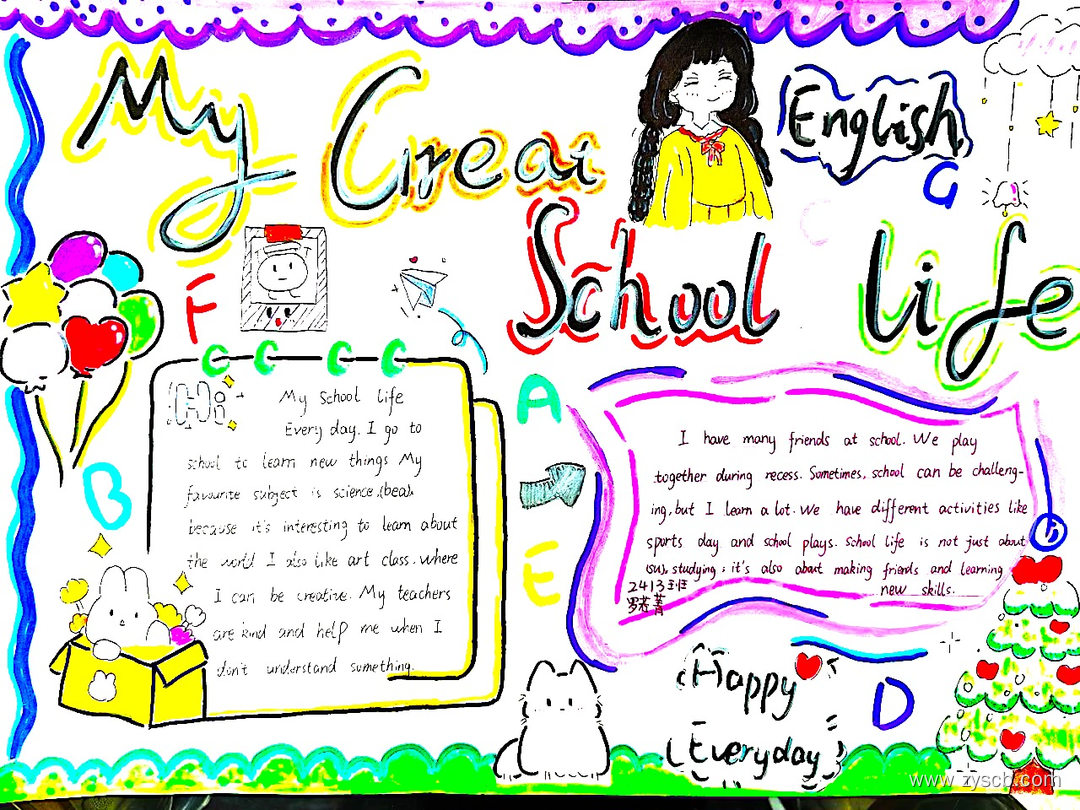 My Great
English
School life
G
F
A
B
E
D
Hi
My School life
Every day. I go to
school to learn new things My
favourite subject is science.
because it's interesting to learn about
the world I also like art class. where
I can be creative. My teachers
are kind and help me when I
don't understand something.
I have many friends at school. We play
together during recess. Sometimes, school can be challeng-
ing, but I learn a lot. We have different activities like
sports day and school plays. School life is not just about
studying; it's also about making friends and learning
new skills.
2413班
Happy
Everyday
www.zyscb.com